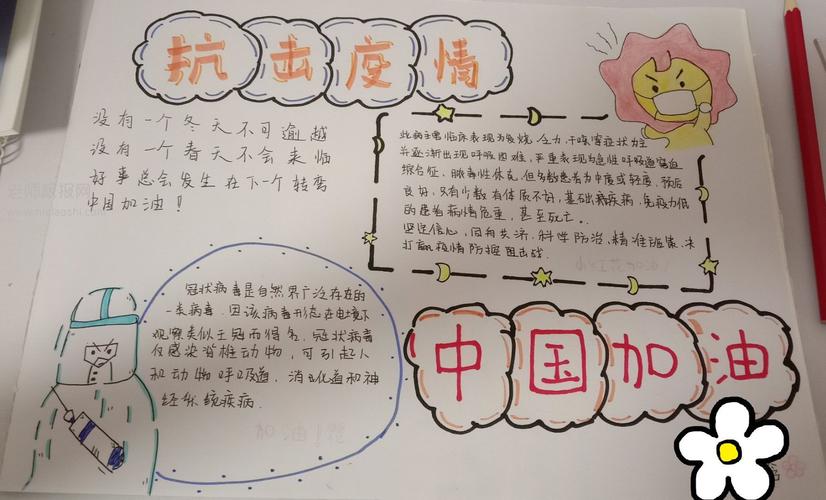 抗击疫情
没有一个冬天不可逾越
没有一个春天不会来临
好事总会发生在下一个转弯
中国加油！
此病主要临床表现为发烧、乏力、干咳等症状为主
并逐渐出现呼吸困难，严重表现为急性呼吸窘迫
综合征、脓毒性休克，但多数患者为中度或轻度，预后
良好，只有少数有体质不好，基础病疾病，免疫力低
的患者病情危重，甚至死亡。
坚定信心，同舟共济，科学防治，精准施策，来
打赢疫情防控阻击战
冠状病毒是自然界广泛存在的
一类病毒，因该病毒形态在电镜下
观察类似王冠而得名，冠状病毒
仅感染脊椎动物，可引起人
和动物呼吸道，消化道和神
经系统疾病．
中国加油